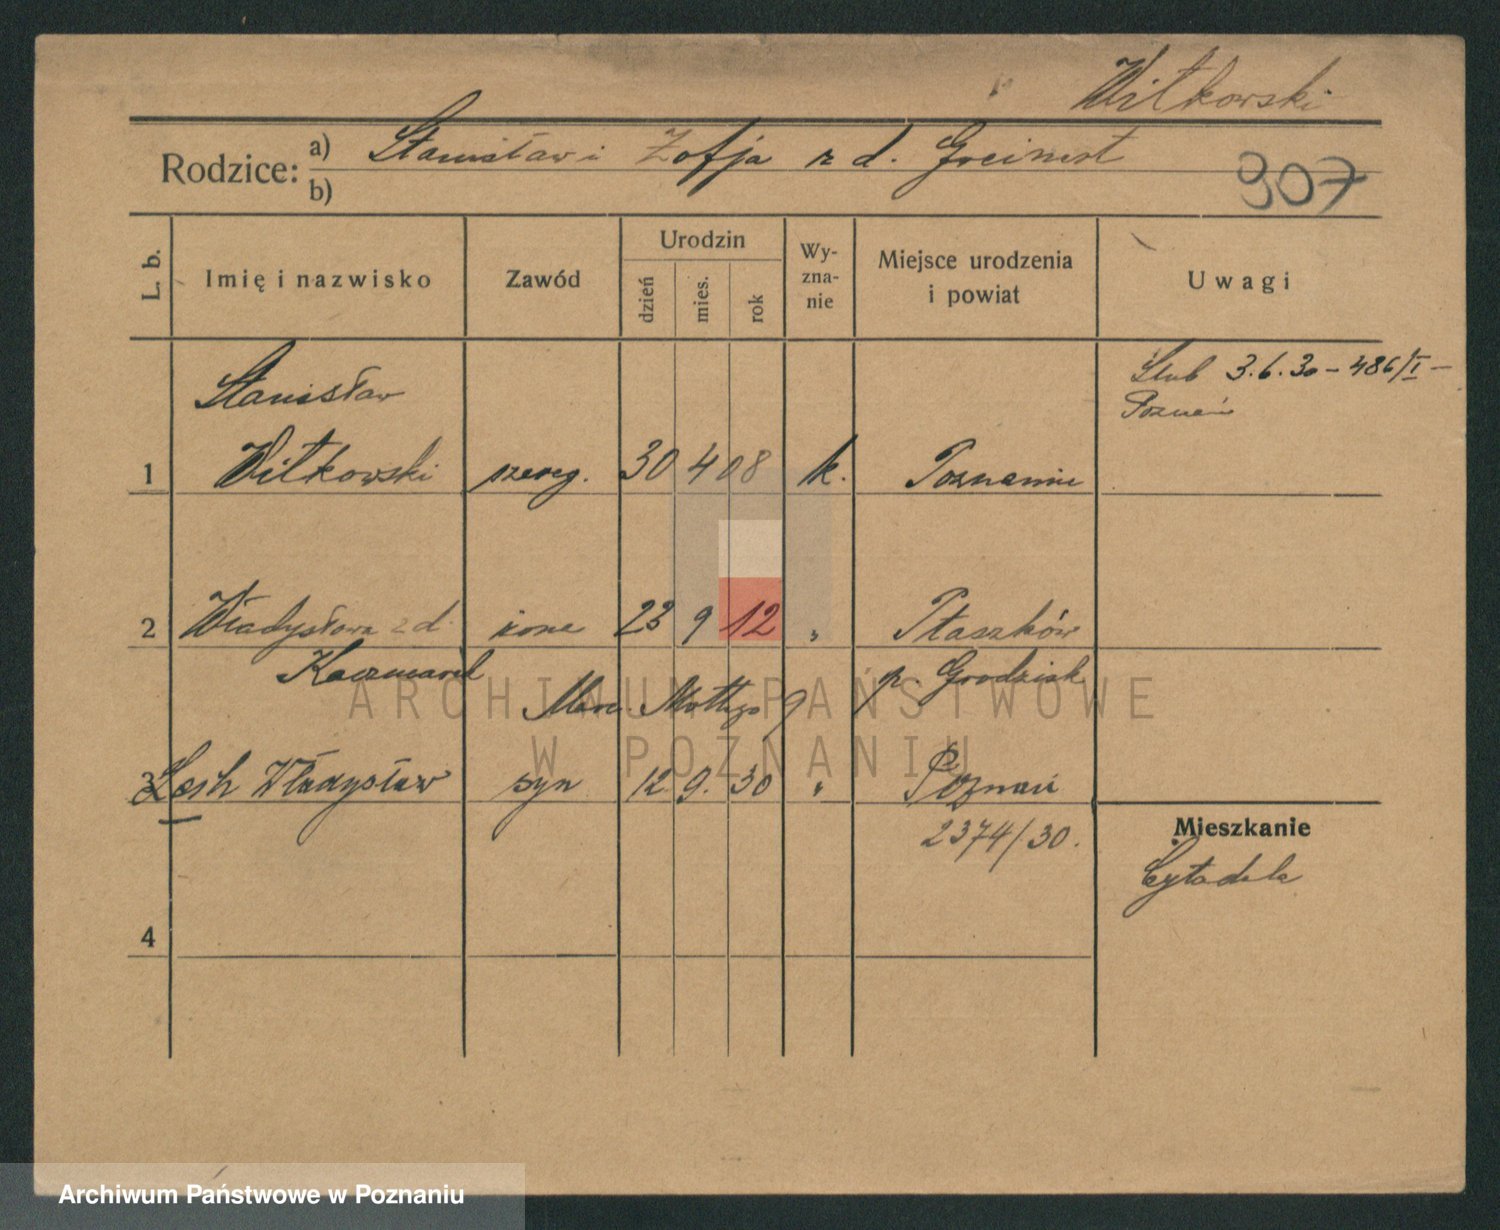 Witkowski
Rodzice: a) Stanisław i Zofja z d. Greinert
b)
907
L. b. Imię i nazwisko Zawód Urodzin dzień mies. rok Wy-zna-nie Miejsce urodzenia i powiat Uwagi
Ślub 3.6.30 – 486/I –
Poznań
Stanisław
1 Witkowski szereg. 30 4 08 k. Poznaniu
2 Władysława z d. żona 23 9 12 „ Ptaszków
Kaczmarek p. Grodzisk
3 Lech Władysław syn 12. 9. 30 „ Poznań
2374/30.
Mieszkanie
Cytadela
4
ARCHIWUM PAŃSTWOWE
W POZNANIU
Archiwum Państwowe w Poznaniu